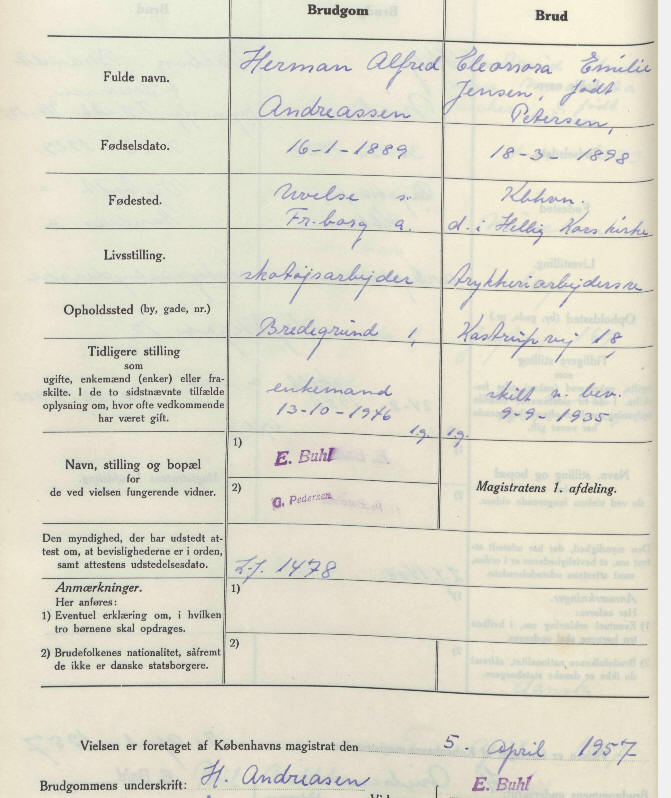 Brudgom Brud
Fulde navn. Herman Alfred Andreassen Eleonora Emilie Jensen, født Petersen,
Fødselsdato. 16-1-1889 18-3-1898
Fødested. Uvelse s. Fr.borg a. Kbhvn. d. i Hellig Kors kirke
Livsstilling. skotøjsarbejder trykkeriarbejderske
Opholdssted (by, gade, nr.) Bredegrund 1, Kastrupvej 18,
Tidligere stilling
som
ugifte, enkemænd (enker) eller fra-
skilte. I de to sidstnævnte tilfælde
oplysning om, hvor ofte vedkommende
har været gift.
enkemand
13-10-1946
1g.
skilt v. bev.
9-9-1935
1g.
Navn, stilling og bopæl
for
de ved vielsen fungerende vidner.
1) E. Buhl
2) G. Pedersen
Magistratens 1. afdeling.
Den myndighed, der har udstedt at-
test om, at bevislighederne er i orden,
samt attestens udstedelsesdato.
L.j. 1478
Anmærkninger.
Her anføres:
1) Eventuel erklæring om, i hvilken
tro børnene skal opdrages.
1)
2) Brudefolkenes nationalitet, såfremt
de ikke er danske statsborgere.
2)
Vielsen er foretaget af Københavns magistrat den 5. april 1957
Brudgommens underskrift: H. Andreasen E. Buhl